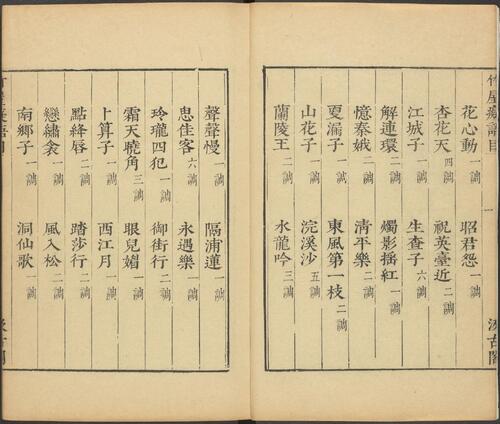 竹屋癡語目
花心動 一調 昭君怨 一調
杏花天 四調 祝英臺近 二調
江城子 一調 生查子 六調
解連環 二調 燭影搖紅 一調
憶秦娥 一調 清平樂 二調
更漏子 一調 東風第一枝 二調
山花子 一調 浣溪沙 五調
蘭陵王 二調 水龍吟 三調
一
汲古閣
聲聲慢 一調 隔浦蓮 一調
思佳客 六調 永遇樂 一調
玲瓏四犯 一調 御街行 二調
霜天曉角 三調 眼兒媚 一調
卜算子 一調 西江月 一調
點絳唇 二調 踏莎行 二調
戀繡衾 一調 風入松 二調
南鄉子 一調 洞仙歌 一調